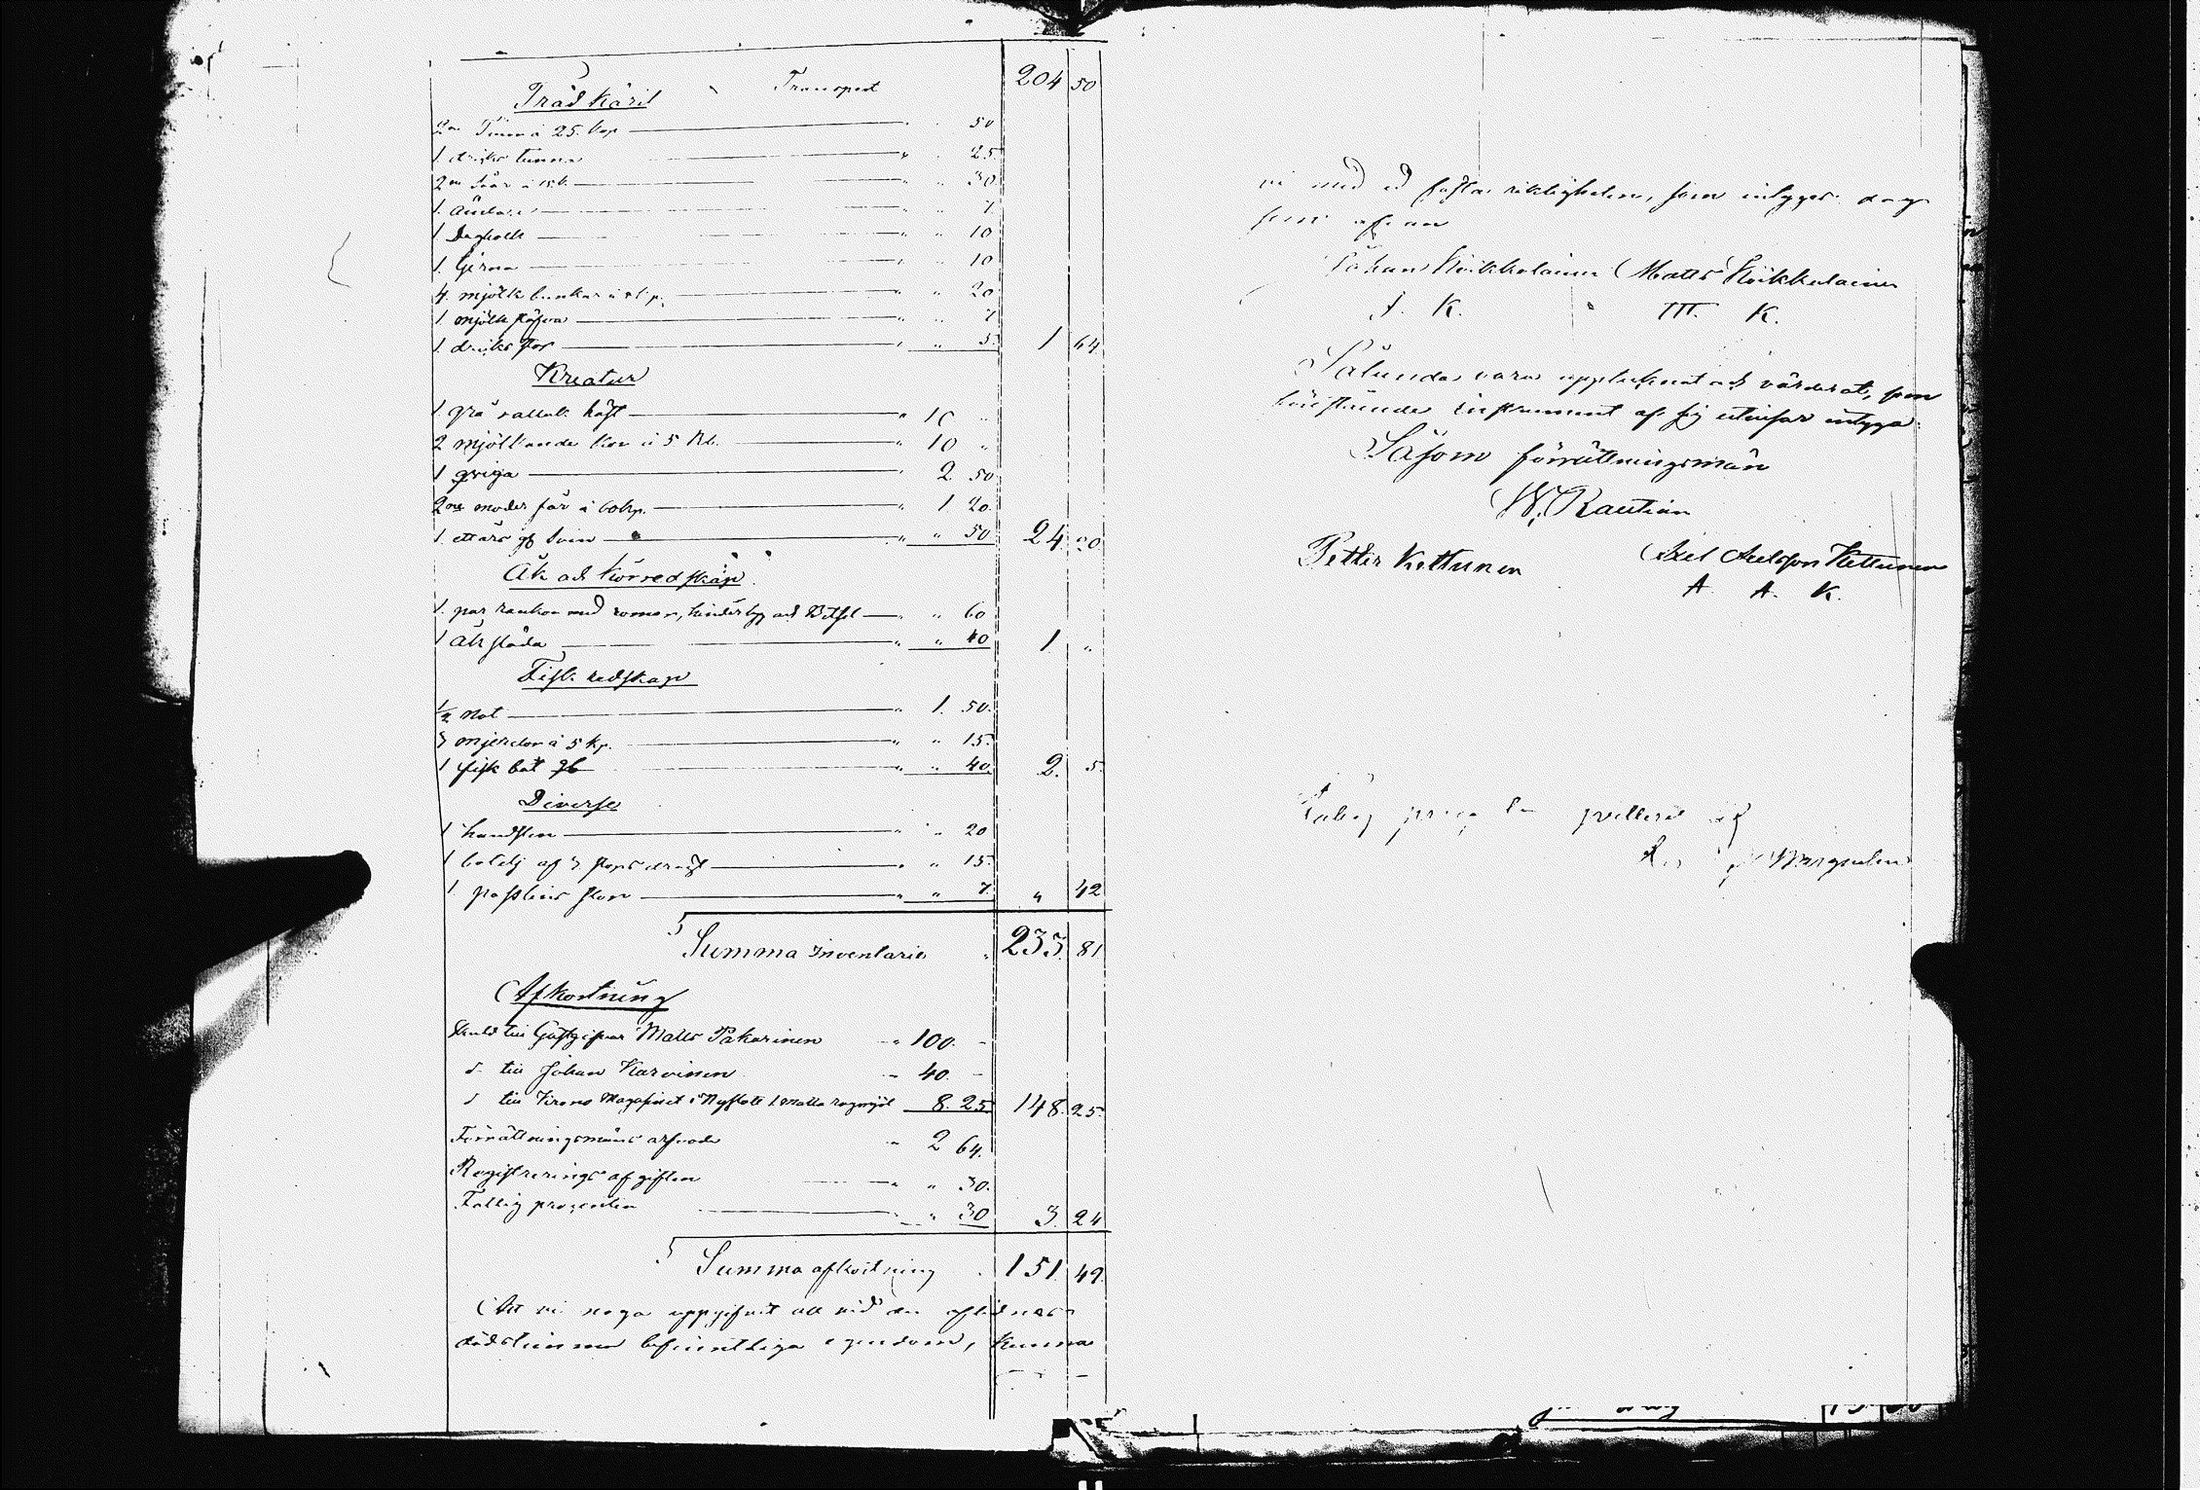 Transport 204 50
Träd Käril
2ne Tinor à 25. kop " " 50
1 dricks tunna " " 25.
2ne Såar à 15 k. " " 30
1. " " 7.
1 " " 10
1. Tjerna " " 10
4. mjölk bunkar à 5 kp. " " 20
1. mjölk " " 7
1. dricks stop " " 5. 1 64
Kreatur
1 grå vallak häst " 10 "
2 mjölkande kor à 5 Rb. " 10 "
1 qviga " 2. 50
2ne moder får à 60 kp. " 1 20.
1. ett års gl svin " " 50 24 20
Åk och Körredskap
1. par rankor med romor, och Betsel " " 60
1 Åk släda " " 40 1 "
Fisk redskap
1/2 Not " 1. 50.
3 mjerdor à 5 kp. " " 15.
1 fisk båt gl " " 40. 2. 5.
Diverse
1 handsten " " 20
1 botelj af 3 stops drägt " " 15.
1 " " 7. " 42
Summa Inventarier " 233. 81
Afkortning
Skuld till Gästgifvar Matts Pakarinen " 100. -
d. till Johan Karvinen " 40. -
d till Krono Magasinet i Nyslott 1 Matta rågmjöl 8. 25. 148. 25.
Förrättningsmäns arfvode " 2 64.
Registrerings afgiften " " 30.
Fattig procenten " " 30 3. 24
Summa afkortning 151. 49.
Att vi noga uppgifvit all vid den aflidnes
dödstimma befintliga egendom, kunna
vi med ed fästa riktigheten, som intyges
Johan Kåikkolainen Matts Kåikkolainen
J. K. M. K.
Sålunda vara upptecknat och värderat, som
instrument af sig utvisar intyga:
Såsom förrättningsmän
W. Rautian
Petter Kettunen Axel Axelsson Kettunen
A. A. K.
Fattig qvitterat